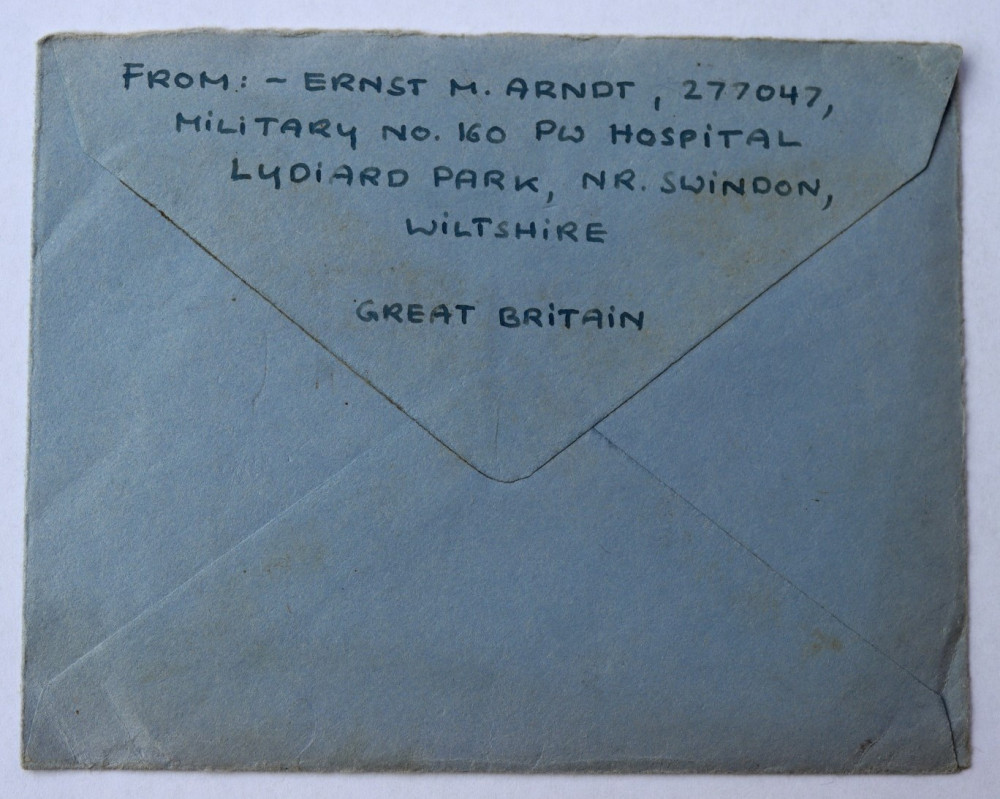 FROM: - ERNST M. ARNDT, 277047,
MiLiTARY NO. 160 PW HOSPiTAL
LYDiARD PARK, NR. SWiNDON,
WiLTSHiRE
GREAT BRiTAiN